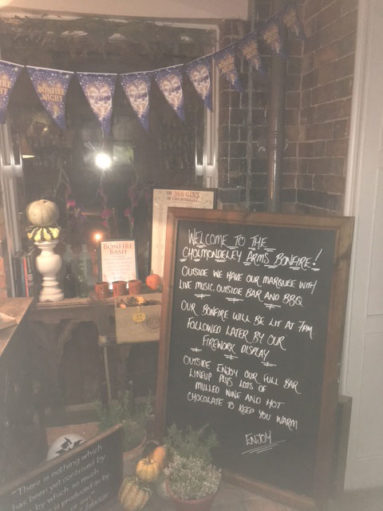 BONFIRE
NIGHT
BONFIRE
BASH
WELCOME TO THE
CHOLMONDELEY ARMS BONFIRE!
OUTSIDE WE HAVE OUR MARQUEE WITH
LIVE MUSIC, OUTSIDE BAR AND BBQ
OUR BONFIRE WILL BE LIT AT 7PM
FOLLOWED LATER BY OUR
FIREWORK DISPLAY
OUTSIDE ENJOY OUR FULL BAR
LINEUP PLUS LOTS OF
MULLED WINE AND HOT
CHOCOLATE TO KEEP YOU WARM
ENJOY
"There is nothing which
has been yet contrived by
by which so much
is produced as by